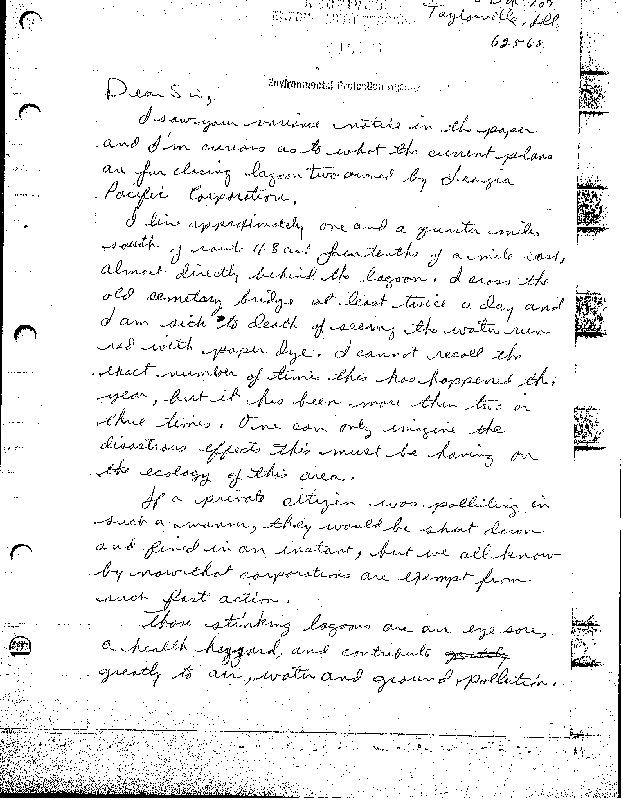 Taylorville, Ill.
62568
Environmental Protection Agency
Dear Sir,
I saw your variance notice in the paper
and I'm curious as to what the current plans
are for closing lagoon two owned by Georgia
Pacific Corporation.
I live approximately one and a quarter miles
south of route 48 and tenths of a mile east,
almost directly behind the lagoon. I cross the
old cemetary bridge at least twice a day and
I am sick to death of seeing the water run
red with paper dye. I cannot recall the
exact number of times this has happened this
year, but it has been more then two or
three times. One can only imagine the
disastrous effects this must be having on
the ecology of this area.
If a private citizen was polliting in
such a manner, they would be shut down
and fined in an instant, but we all know
by now that corporations are exempt from
such fast action.
Those stinking lagoons are an eye sore,
a health hazzard, and contribute greatly
greatly to air, water and ground pollution.